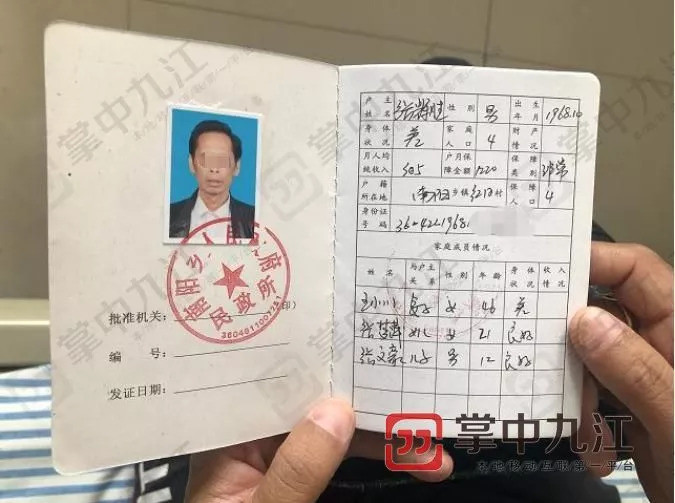 掌中九江
本地移动互联第一平台
南阳乡人民政府
民政所
批准机关： （印）
编 号：
发证日期：
户主姓名 张 性别 男 出生年月 1968.10
身体状况 差 家庭人口 4 财产情况
月人均纯收入 305 户月保障金额 1220 保障类别
户籍所在地 南阳乡镇 村 保障人口 4
身份证号码
家庭成员情况
姓名 与户主关系 性别 年龄 身体状况 收入情况
王小 妻子 女 46 差
张梦 女儿 女 21 良好
张文豪 儿子 男 12 良好
掌中九江
本地移动互联第一平台